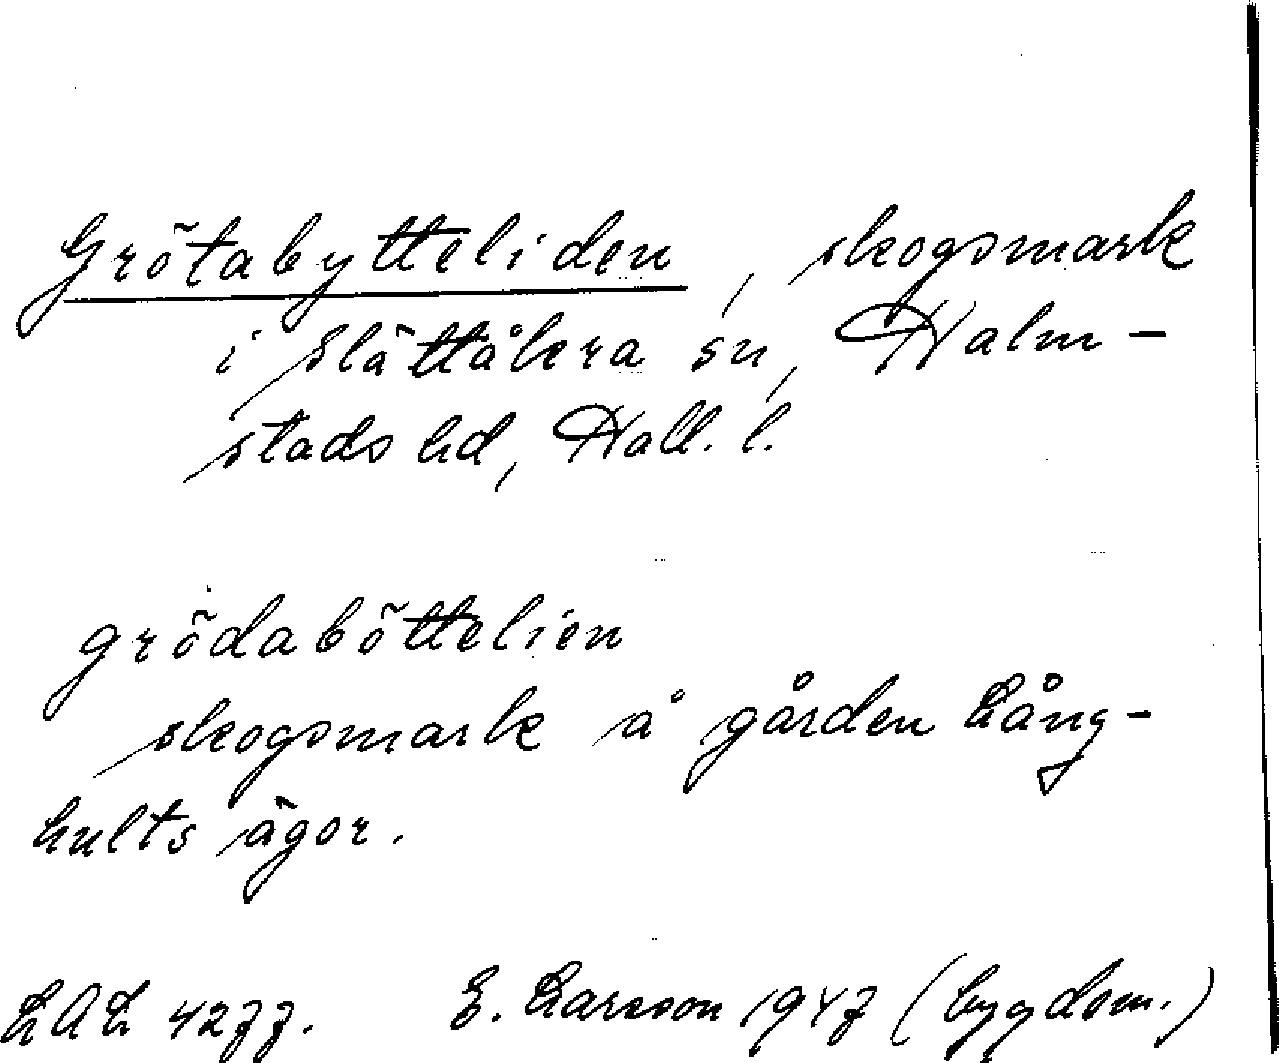 Grötabytteliden, skogsmark
i Slättåkra sn, Halm-
stads hd, Hall. l.
grödaböttelien
skogsmark å gården Lång-
hults ägor.
LAL 4277. E. Larsson 1947 (bygdem.)